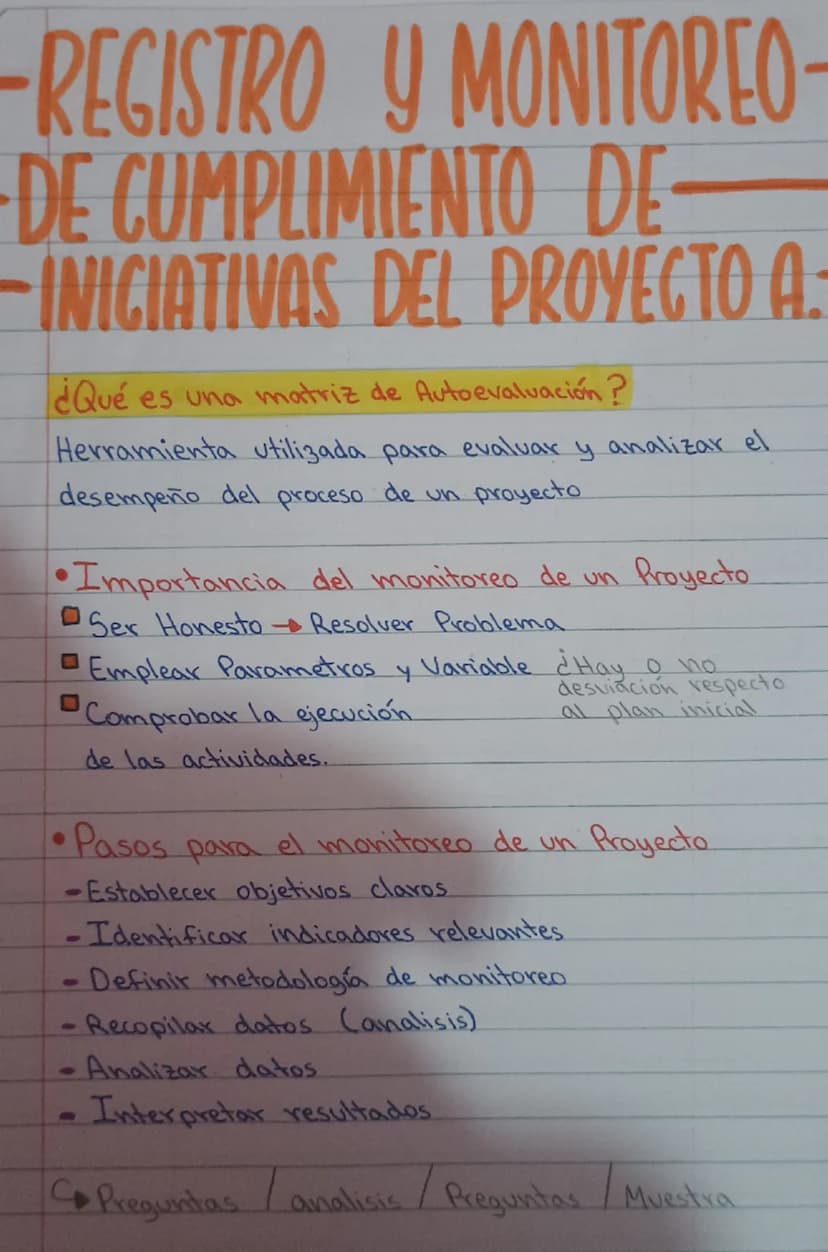 -REGISTRO Y MONITOREO-
-DE CUMPLIMIENTO DE-
-INICIATIVAS DEL PROYECTO A.-
¿Qué es una matriz de Autoevaluación?
Herramienta utilizada para evaluar y analizar el
desempeño del proceso de un proyecto
•Importancia del monitoreo de un Proyecto
Ser Honesto → Resolver Problema
Emplear Parametros y Variable ¿Hay o no
desviación respecto
al plan inicial
Comprobar la ejecución
de las actividades.
•Pasos para el monitoreo de un Proyecto
-Establecer objetivos claros
-Identificar indicadores relevantes
-Definir metodología de monitoreo
-Recopilar datos (analisis)
-Analizar datos
-Interpretar resultados
↳ Preguntas / analisis / Preguntas / Muestra